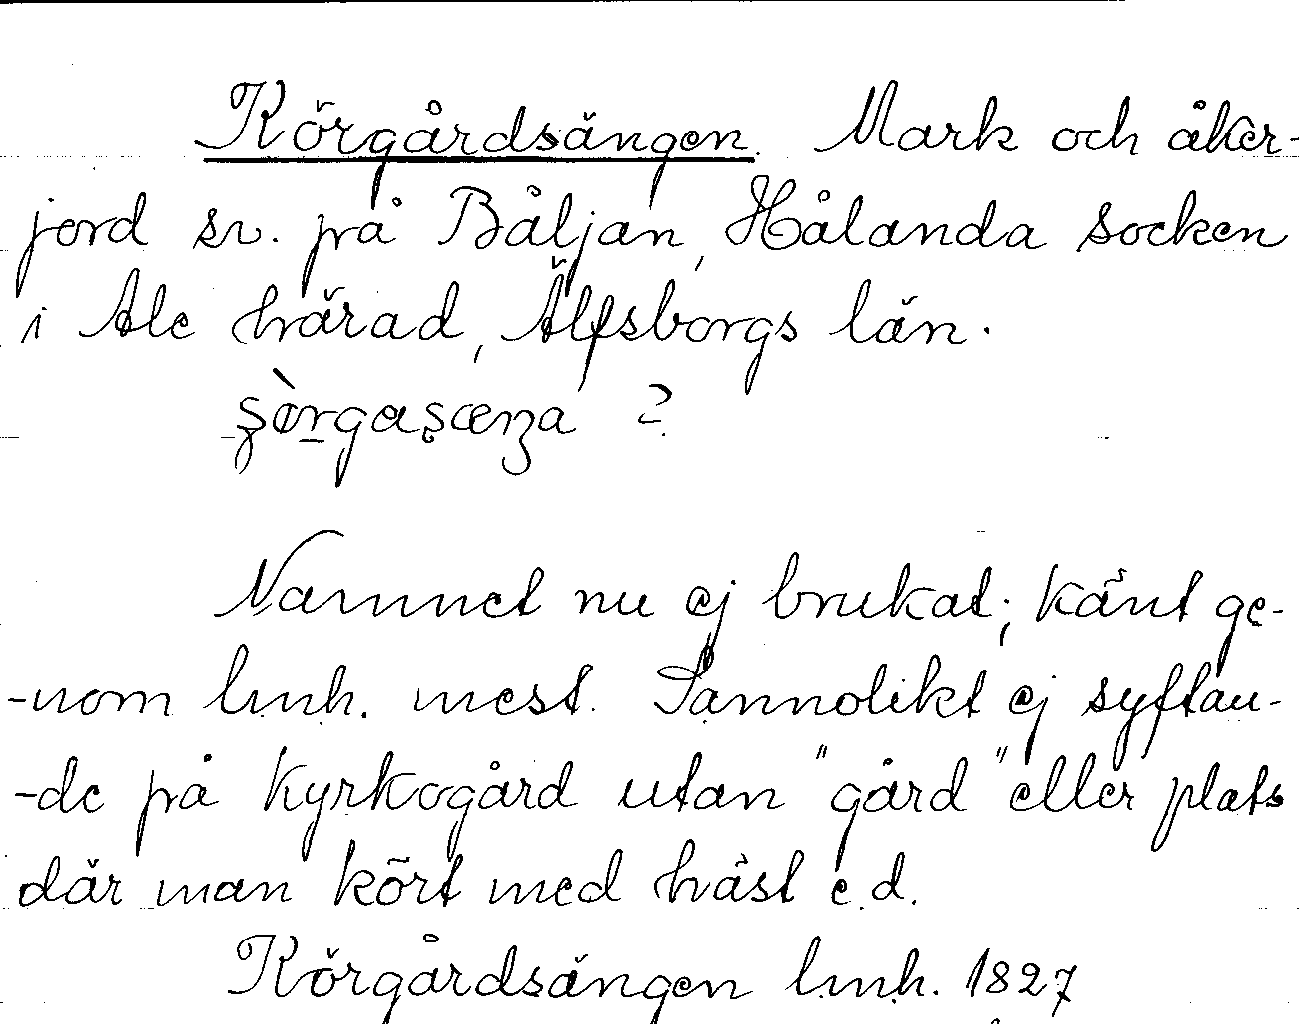 Körgårdsängen. Mark och åker-
jord sv. på Båljan, Hålanda socken
i Ale härad, Älfsborgs län.
?
Namnet nu ej brukat; känt ge-
-nom lmh. mest. Sannolikt ej syftan-
-de på kyrkogård utan "gård" eller plats
där man kört med häst e.d.
Körgårdsängen lmh. 1827